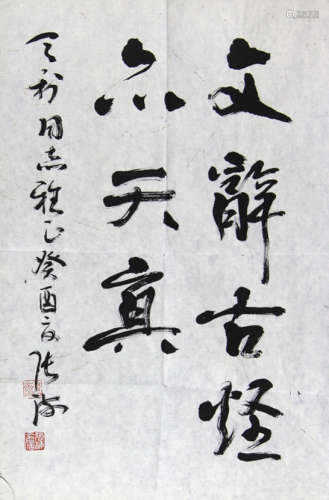 文辭古怪
亦天真
天利同志雅正癸酉夏張海